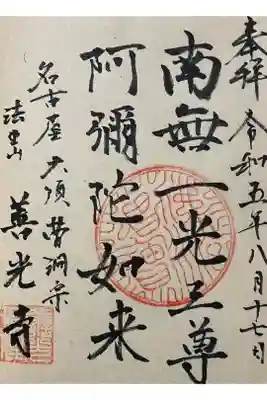 奉拝 令和五年八月十七日
南無一光三尊
阿彌陀如来
名古屋大須 曹洞宗
善光寺